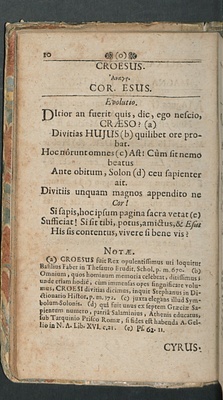 10 (o)
CROESUS.
Ἀναγρ.
COR. ESUS.
Evolutio.
DItior an fuerit quis, dic, ego nescio,
CRÆSO? (a)
Divitias HUJUS (b) quilibet ore pro-
bat.
Hoc nôrunt omnes (c) Ast! Cùm sit nemo
beatus
Ante obitum, Solon (d) ceu sapienter
ait.
Divitiis unquam magnos appendito ne
Cor!
Si sapis, hoc ipsum pagina sacra vetat (e)
Sufficiat! Si sit tibi, potus, amictus, & Esus
His sis contentus, vivere si bene vis?
NOTÆ.
(a) CROESUS fuit Rex opulentissimus uti loquitur
Basilius Faber in Thesauro Erudit. Schol. p. m. 670. (b)
Omnium, quos hominum memoria celebrat, ditissimus:
unde etiam hodiè, cum immensas opes significare volu-
mus, CROESI divitias dicimus, inquit Stephanus in Di-
ctionario Histor. p. m. 372. (c) juxta elegans illud Sym-
bolum: (d) qui fuit unus ex septem Græciæ Sa-
pientem numero, patriâ Salaminius, Athenis educatus,
sub Tarquinio Prisco Romæ, si fides sit habenda A. Gel-
lio in N. A. Lib. XVI. c. 21. (e) Ps. 62. 11.
CYRUS.